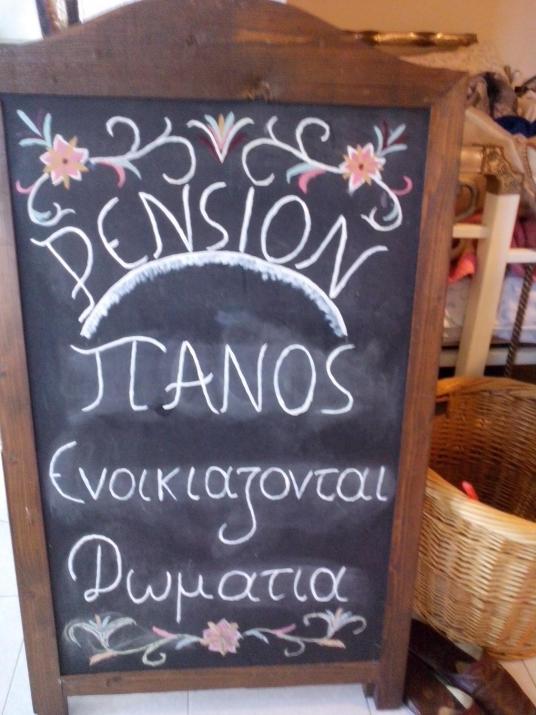 PENSION
ΠΑΝΟS
Ενοικιαζονται
Δωματια